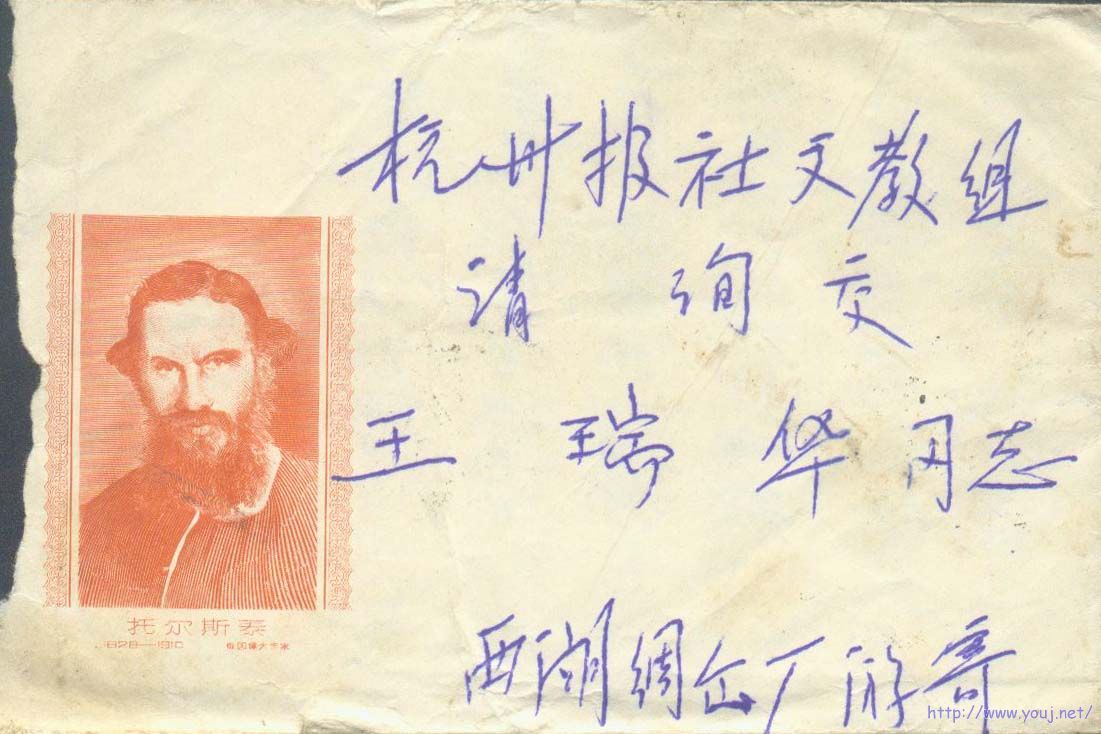 杭州报社文教组
请询交
王瑞华同志
托尔斯泰
1828—1910 俄国伟大作家
西湖绸伞厂游寄
http://www.youj.net/